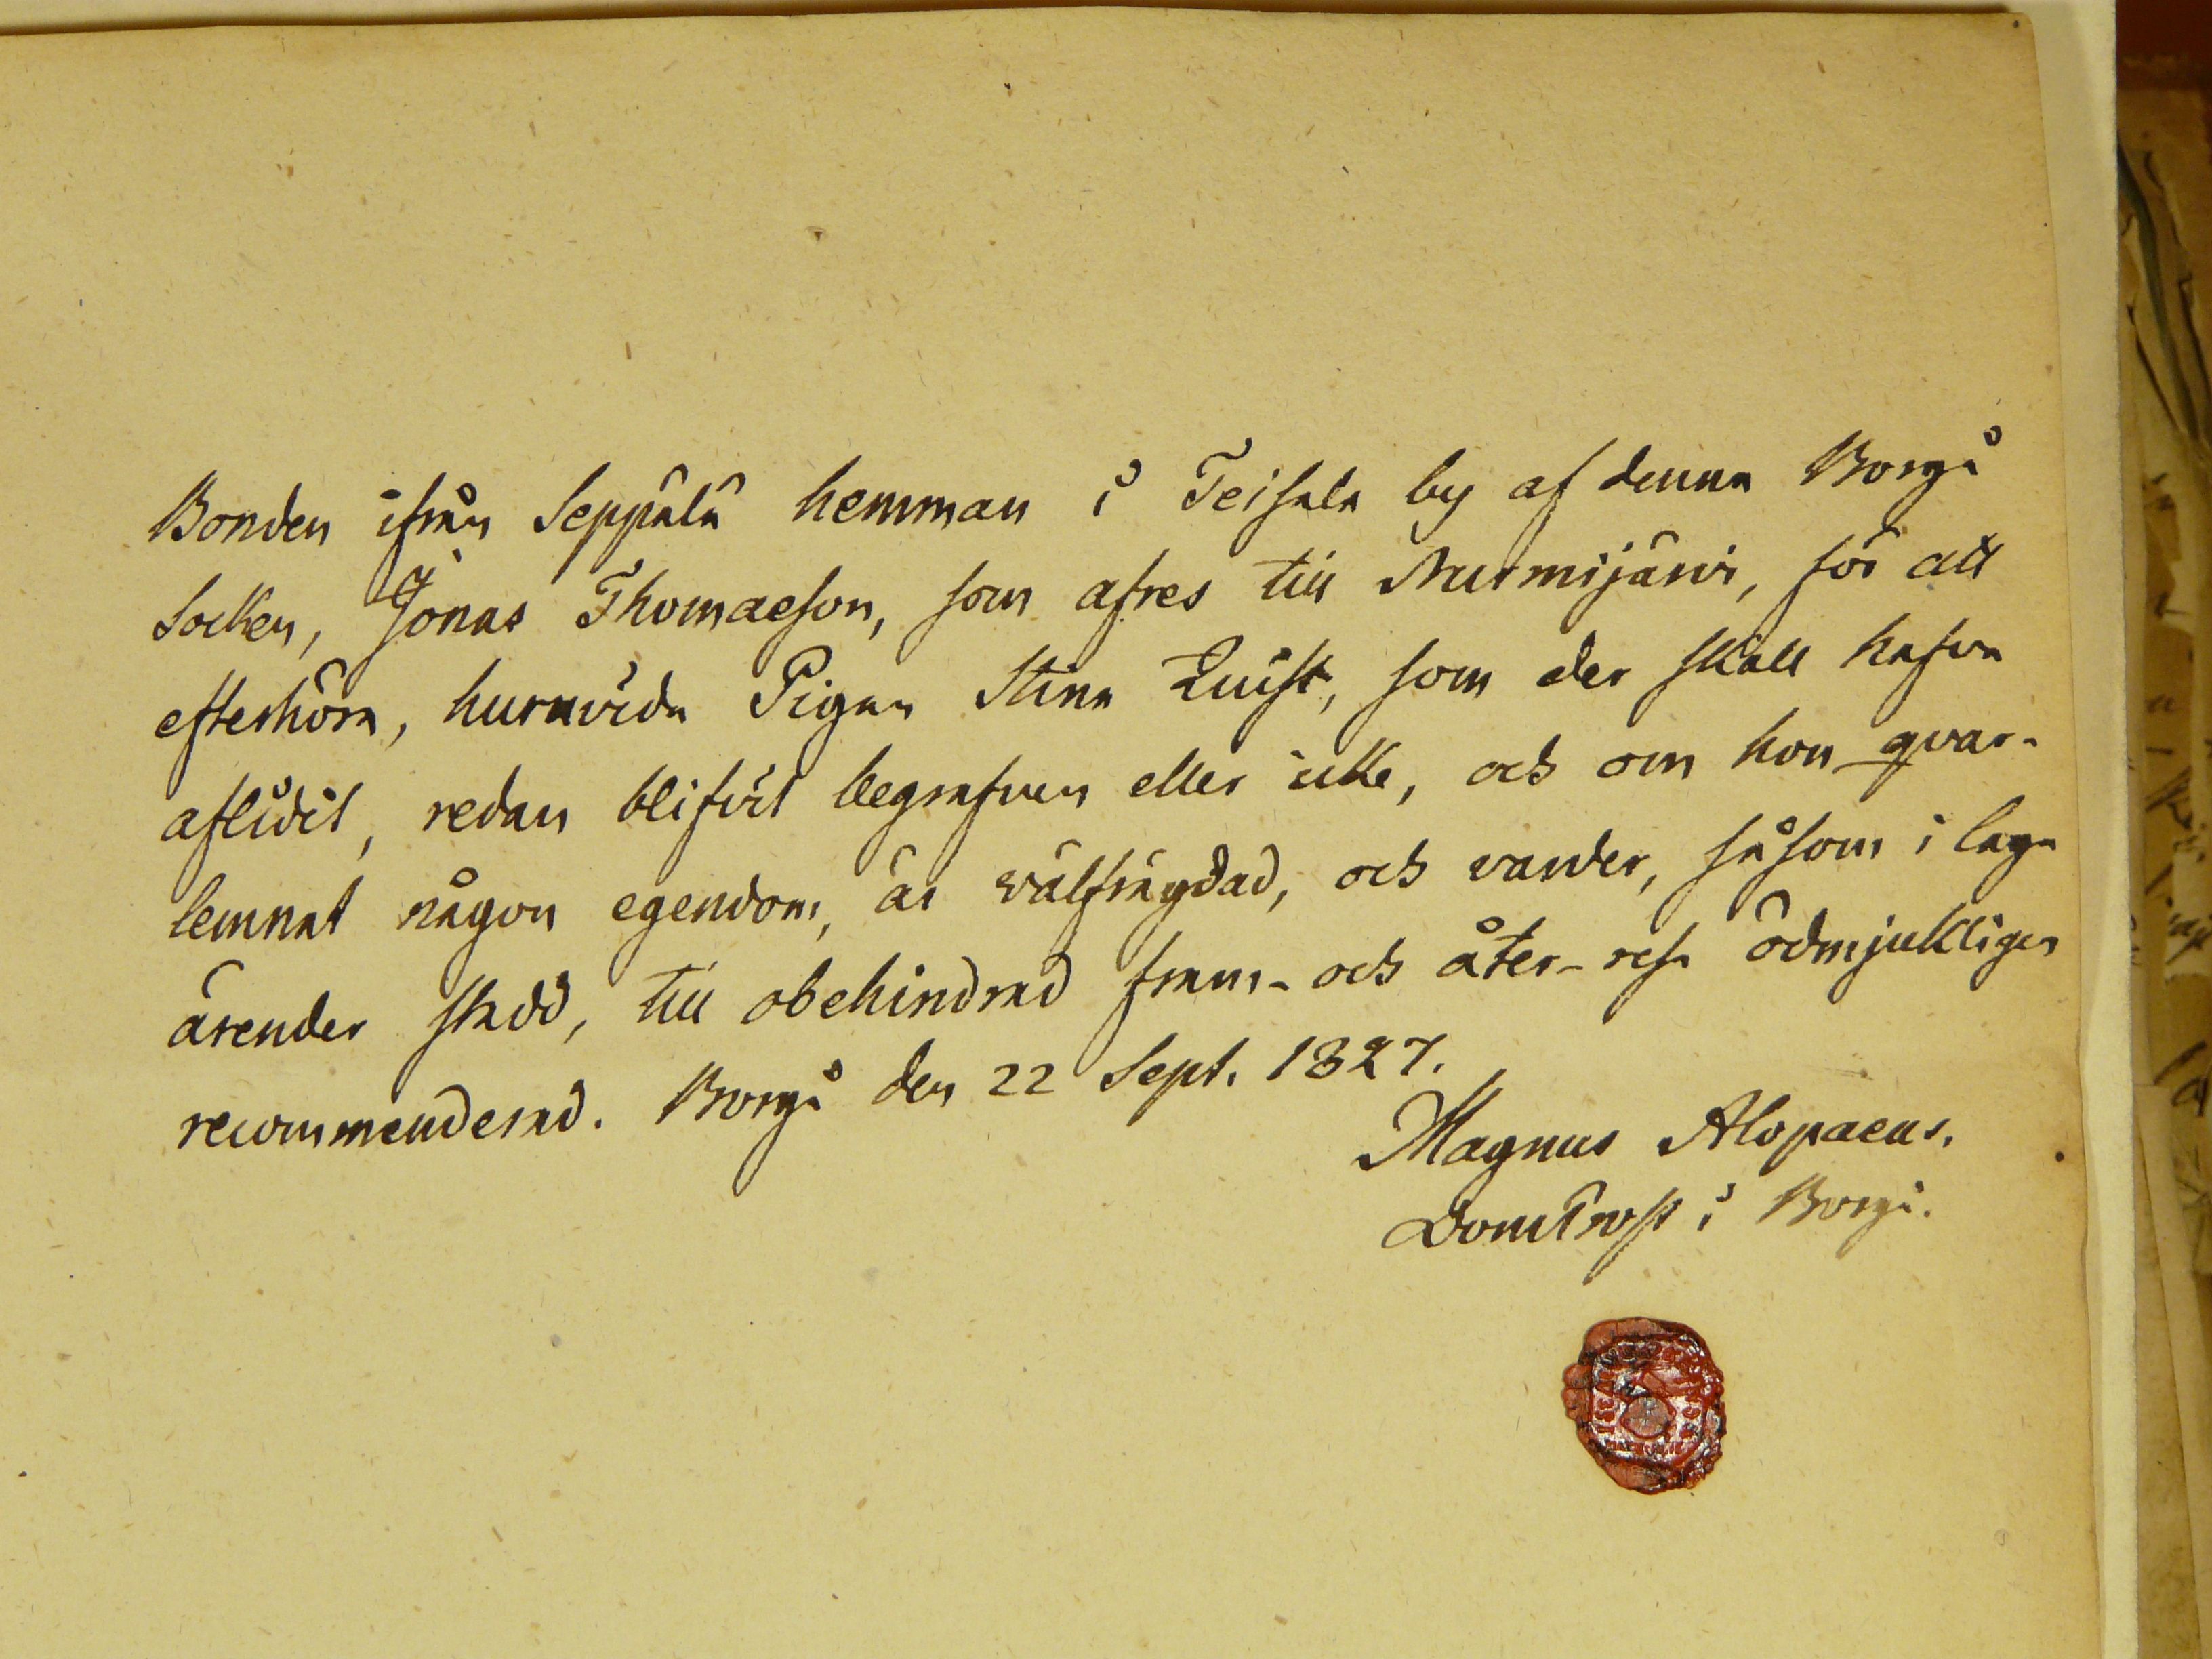 Bonden ifrån Seppälä hemman i Teisala by af denna Borgå
Socken, Jonas Thomaeson, som afres till Nurmijärvi, för att
efterhöra, huruvida Pigan Stina Quist, som der skall hafva
aflidit, redan blifvit begrafven eller icke, och om hon qvar-
lemnat någon egendom, är välfrägdad, och varder, såsom i laga
ärender stadd, till obehindrad fram- och åter-resa ödmjukligen
recommenderad. Borgå den 22 Sept. 1827.
Magnus Alopaeus.
DomProst i Borgå.